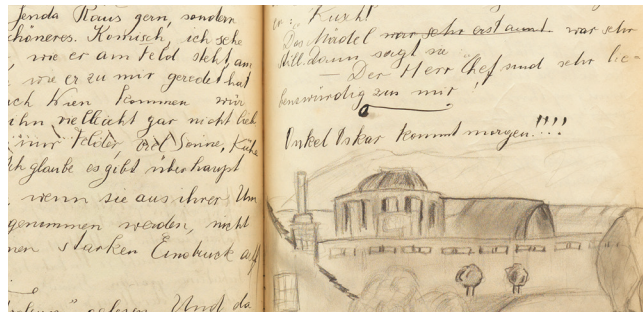 Jenda Klaus gern, sondern
schöneres. Komisch, ich sehe
, wie er am Feld steht, am
, wie er zu mir geredet hat
ich Wien kommen wür
ihn vielleicht gar nicht lieb
Felder, viel Sonne, Kühe
Ich glaube es gibt überhaupt
, wenn sie aus ihrer Um
genommen werden, nicht
nen starken Eindruck auf
gelesen. Und da
Das Mädel war sehr erstaunt war sehr
still. Dann sagt sie
– Der Herr Chef sind sehr lie-
benswürdig zu mir!
Onkel Oskar kommt morgen!!!!